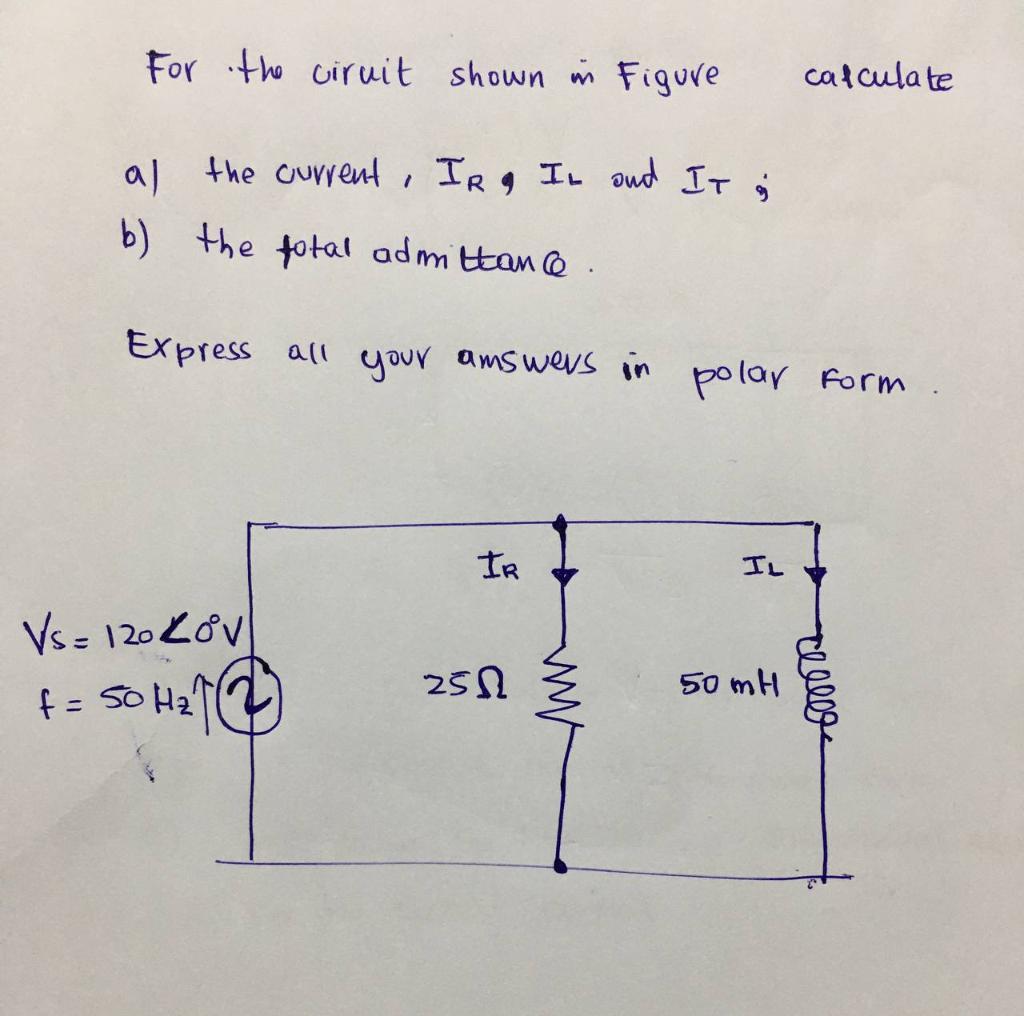 For the ciruit shown in Figure calculate
a) the current, IR, IL and IT;
b) the total admittance.
Express all your amswers in polar Form.
IR
IL
Vs = 120∠0°V
25Ω
50 mH
f = 50 Hz